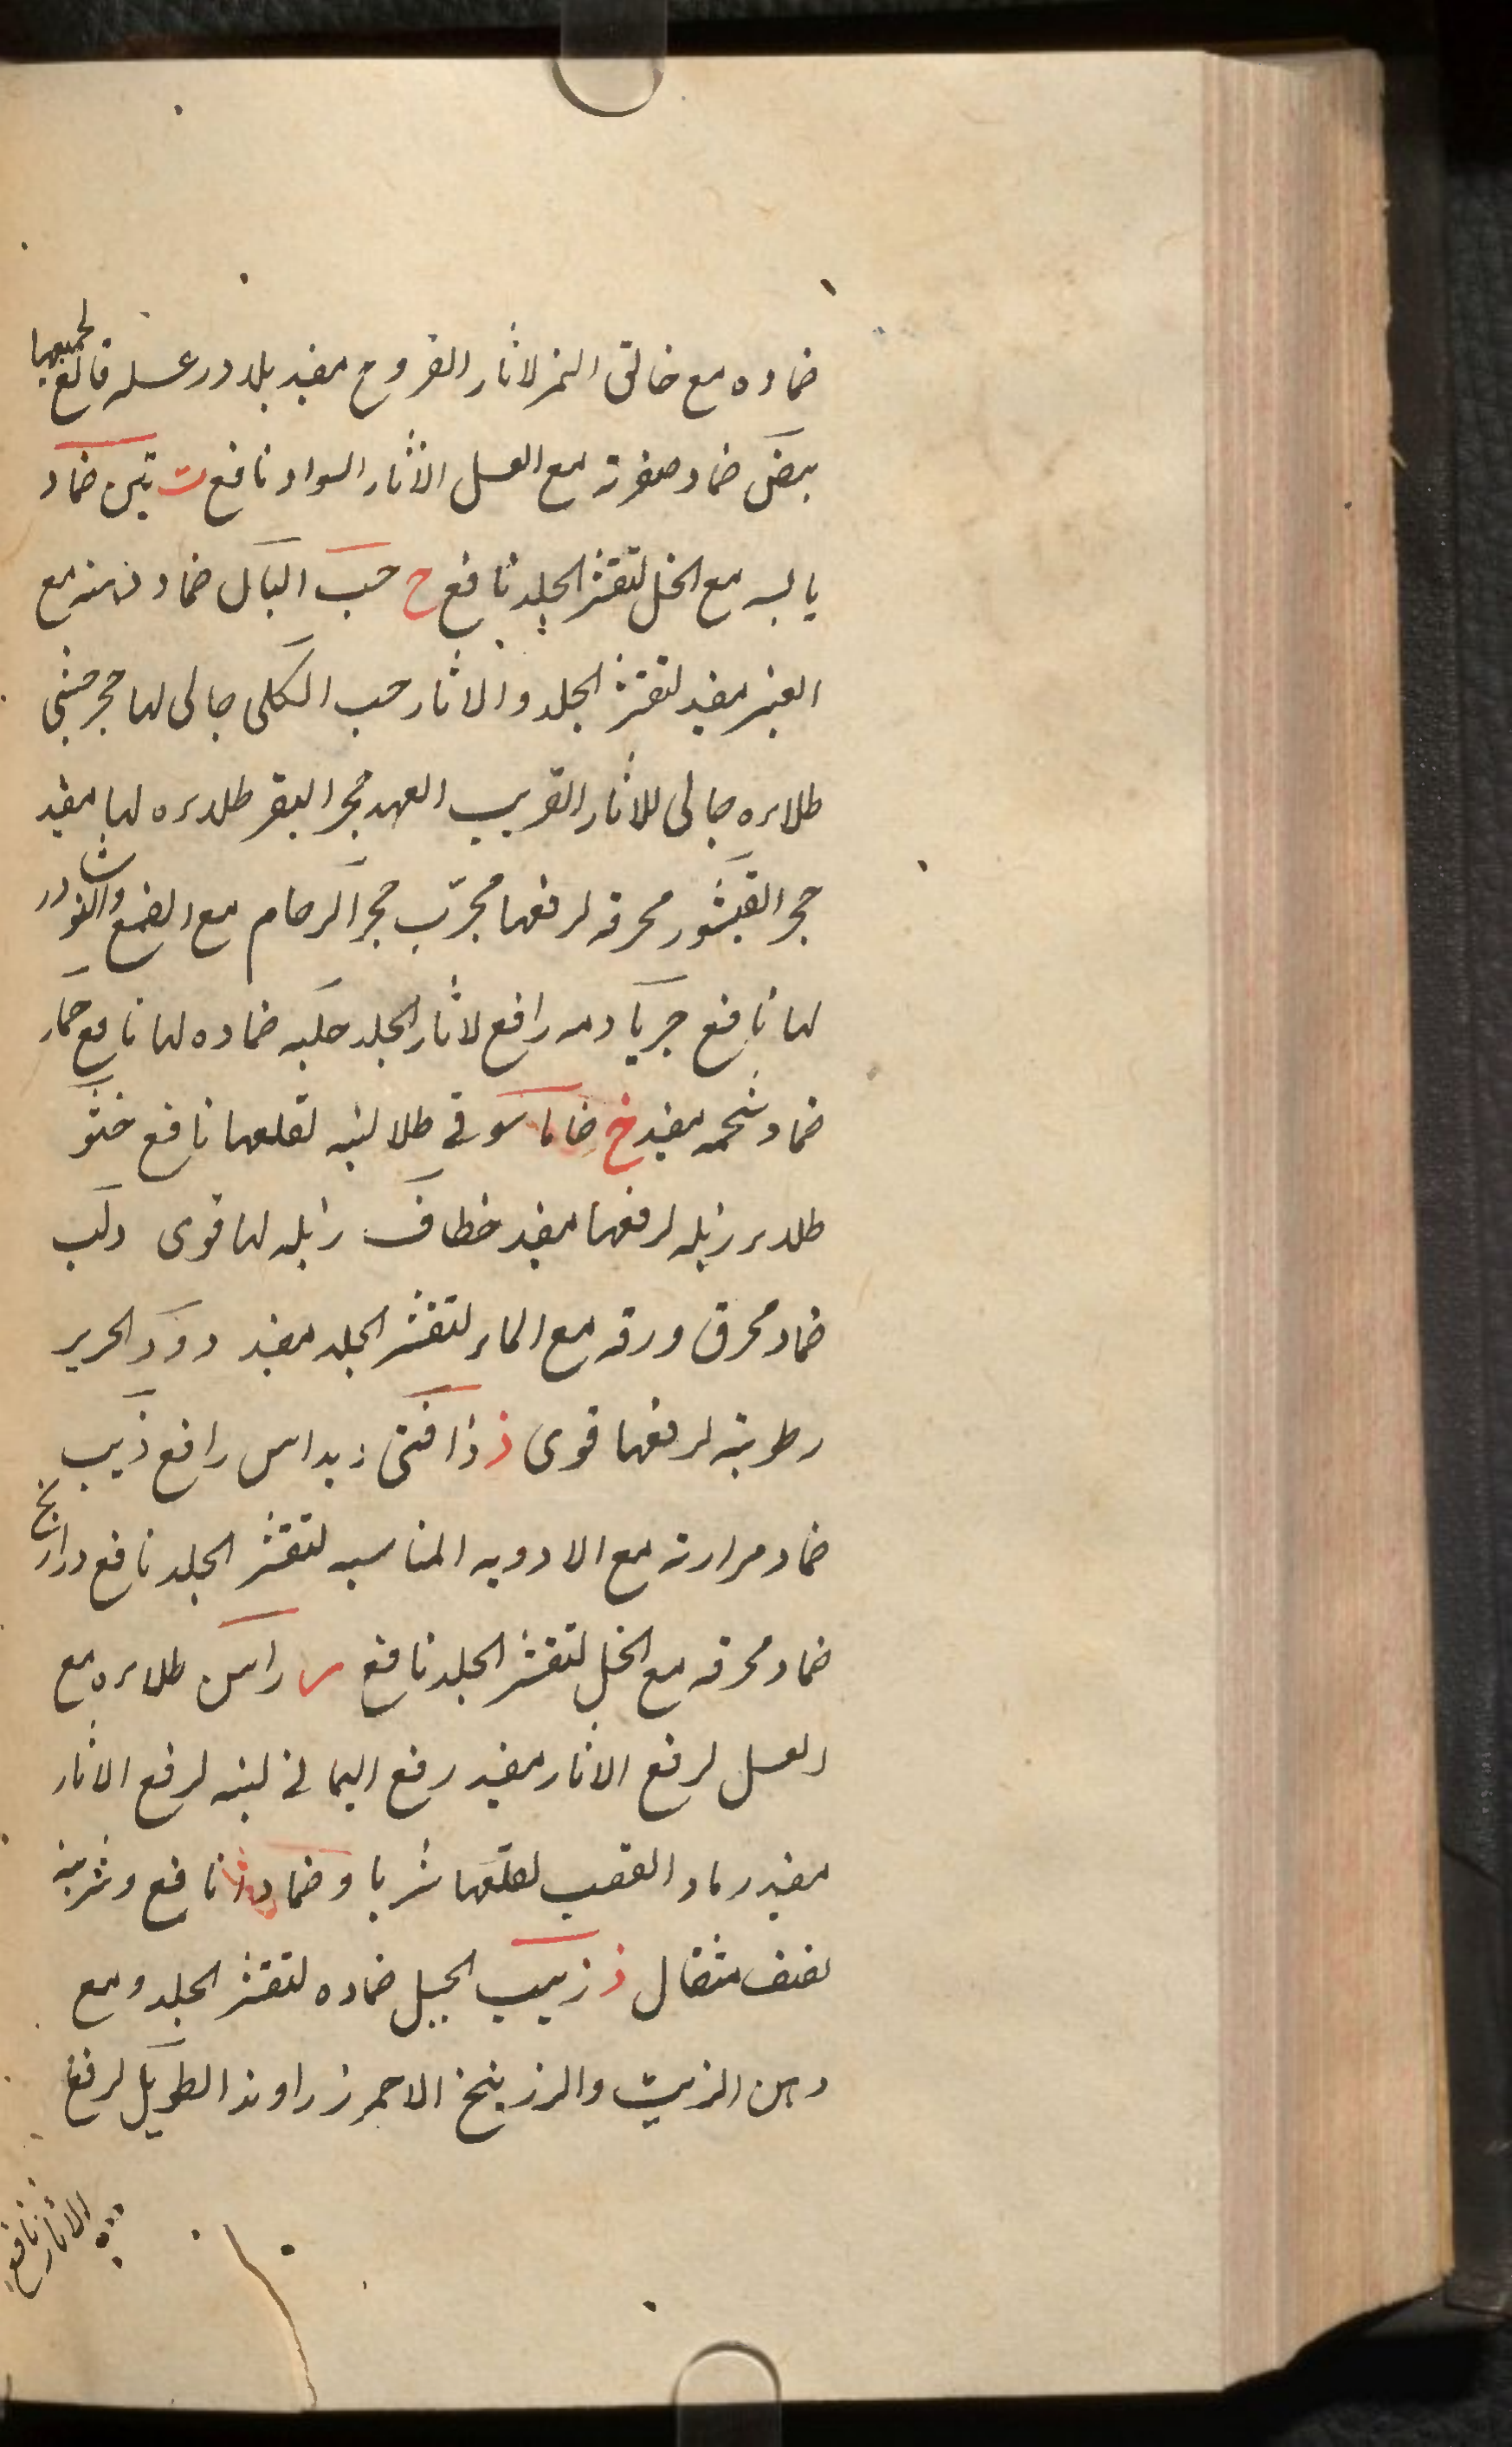 ضماده مع خالق النمر لاثار القروح مفيد بلادر عسله قالع لجميعها
بيض ضماد صفرته مع العسل الاثار السواد نافع ت تين ضماد
يابسه مع الخل لتقشر الجلد نافع ح حب البان ضماد دهنه مع
العنبر مفيد لتقشر الجلد والاثار حب الكلى جالى لها حجر حبشى
طلاءه جالى للاثار القريب العهد حجر البقر طلاءه لها مفيد
حجر القيشور محرقه لرفعها مجرّب حجر الرخام مع الصمغ والنوشادر
لها نافع جريا دمه رافع لاثار الجلد حلبه ضماده لها نافع حمار
ضماد شحمه مفيد خ خاماسوقى طلا لبنه لقلعها نافع خنثو
طلاء زبله لرفعها مفيد خطاف زبله لها قوى دلب
ضماد محرق ورقه مع الماء لتقشر الجلد مفيد دود الحرير
رطوبته لرفعها قوى ذ ذافنى ديداس رافع ذيب
ضماد مرارته مع الادويه المناسبه لتقشر الجلد نافع ذراريح
ضماد محرقه مع الخل لتقشر الجلد نافع ر راسن طلاءه مع
العسل لرفع الاثار مفيد اليمانى لبنه لرفع الاثار
مفيد رماد العقب لقلعها شربا وضمادا نافع وشربته
نصف مثقال ز زبيب الجبل ضماده لتقشر الجلد ومع
دهن الزيت والزرنيخ الاحمر زراوند الطويل لرفع
الاثار نافع